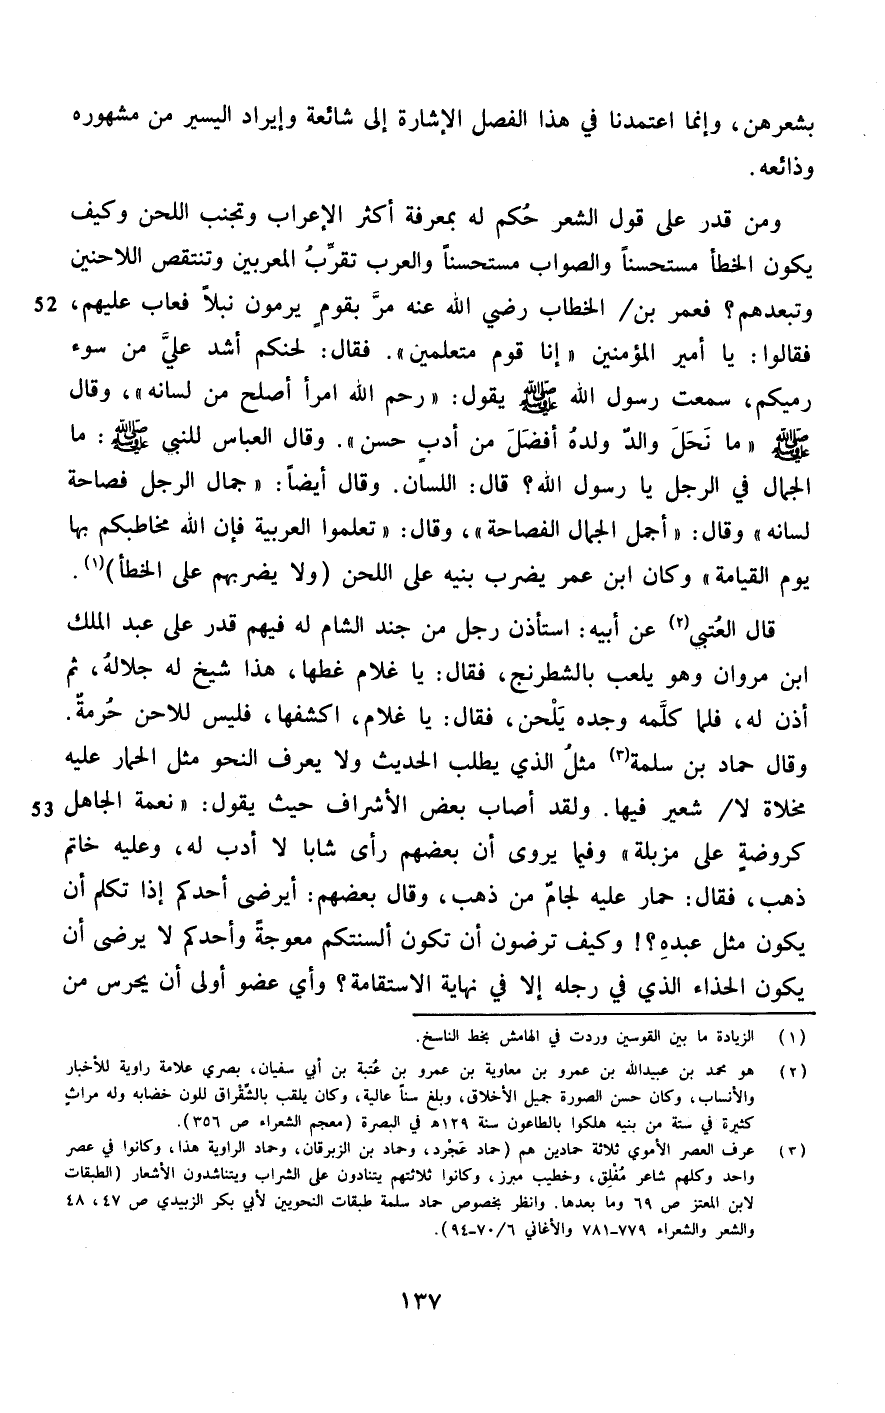 بشعرهن، وإنما اعتمدنا في هذا الفصل الإشارة إلى شائعة وإيراد اليسير من مشهوره
وذائعه.
ومن قدر على قول الشعر حُكم له بمعرفة أكثر الإعراب وتجنب اللحن وكيف
يكون الخطأ مستحسناً والصواب مستحسناً والعرب تقرِّبُ المعربين وتنتقص اللاحنين
وتبعدهم؟ فعمر بن/ الخطاب رضي الله عنه مرَّ بقومٍ يرمون نبلاً فعاب عليهم، 52
فقالوا: يا أمير المؤمنين «إنا قوم متعلمين». فقال: لحنكم أشد عليَّ من سوء
رميكم، سمعت رسول الله ﷺ يقول: «رحم الله امرأ أصلح من لسانه»، وقال
ﷺ «ما نَحَلَ والدٌ ولدهُ أفضَلَ من أدبٍ حسن». وقال العباس للنبي ﷺ: ما
الجمال في الرجل يا رسول الله؟ قال: اللسان. وقال أيضاً: «جمال الرجل فصاحة
لسانه» وقال: «أجمل الجمال الفصاحة»، وقال: «تعلموا العربية فإن الله مخاطبكم بها
يوم القيامة» وكان ابن عمر يضرب بنيه على اللحن (ولا يضربهم على الخطأ)(١).
قال العُتبي(٢) عن أبيه: استأذن رجل من جند الشام له فيهم قدر على عبد الملك
ابن مروان وهو يلعب بالشطرنج، فقال: يا غلام غطها، هذا شيخ له جلالهُ، ثم
أذن له، فلما كلَّمه وجده يَلْحن، فقال: يا غلام، اكشفها، فليس للاحن حُرمةٌ.
وقال حماد بن سلمة(٣) مثلُ الذي يطلب الحديث ولا يعرف النحو مثل الحمار عليه
مخلاة لا/ شعير فيها. ولقد أصاب بعض الأشراف حيث يقول: «نعمة الجاهل 53
كروضةٍ على مزبلة» وفيما يروى أن بعضهم رأى شابا لا أدب له، وعليه خاتم
ذهب، فقال: حمار عليه لجامٌ من ذهب، وقال بعضهم: أيرضى أحدكم إذا تكلم أن
يكون مثل عبدهِ؟! وكيف ترضون أن تكون ألسنتكم معوجةً وأحدكم لا يرضى أن
يكون الحذاء الذي في رجله إلا في نهاية الاستقامة؟ وأي عضو أولى أن يحرس من
(١) الزيادة ما بين القوسين وردت في الهامش بخط الناسخ.
(٢) هو محمد بن عبيدالله بن عمرو بن معاوية بن عمرو بن عُتبة بن أبي سفيان، بصري علامة راوية للأخبار
والأنساب، وكان حسن الصورة جميل الأخلاق، وبلغ سناً عالية، وكان يلقب بالشِّقْراق للون خضابه وله مراثٍ
كثيرة في ستة من بنيه هلكوا بالطاعون سنة ١٢٩هـ في البصرة (معجم الشعراء ص ٣٥٦).
(٣) عرف العصر الأموي ثلاثة حمادين هم (حماد عَجْرد، وحماد بن الزبرقان، وحماد الراوية هذا، وكانوا في عصر
واحد وكلهم شاعر مُفْلِق، وخطيب مبرز، وكانوا ثلاثتهم يتنادون على الشراب ويتناشدون الأشعار (الطبقات
لابن المعتز ص ٦٩ وما بعدها. وانظر بخصوص حماد سلمة طبقات النحويين لأبي بكر الزبيدي ص ٤٧، ٤٨
والشعر والشعراء ٧٧٩-٧٨١ والأغاني ٦/ ٧٠-٩٤).
١٣٧